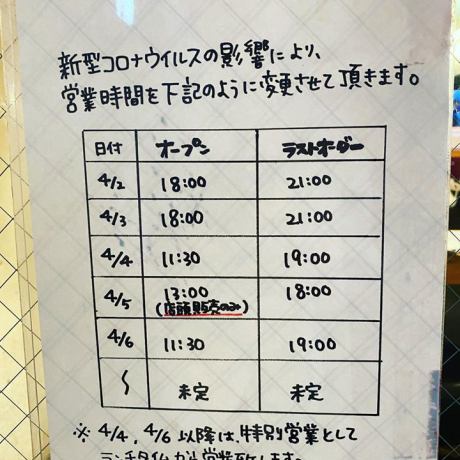 新型コロナウイルスの影響により、
営業時間を下記のように変更させて頂きます。
日付 オープン ラストオーダー
4/2 18:00 21:00
4/3 18:00 21:00
4/4 11:30 19:00
4/5 13:00 18:00
(店頭販売のみ)
4/6 11:30 19:00
〜 未定 未定
※ 4/4, 4/6 以降は、特別営業として
ランチタイムから営業致します。